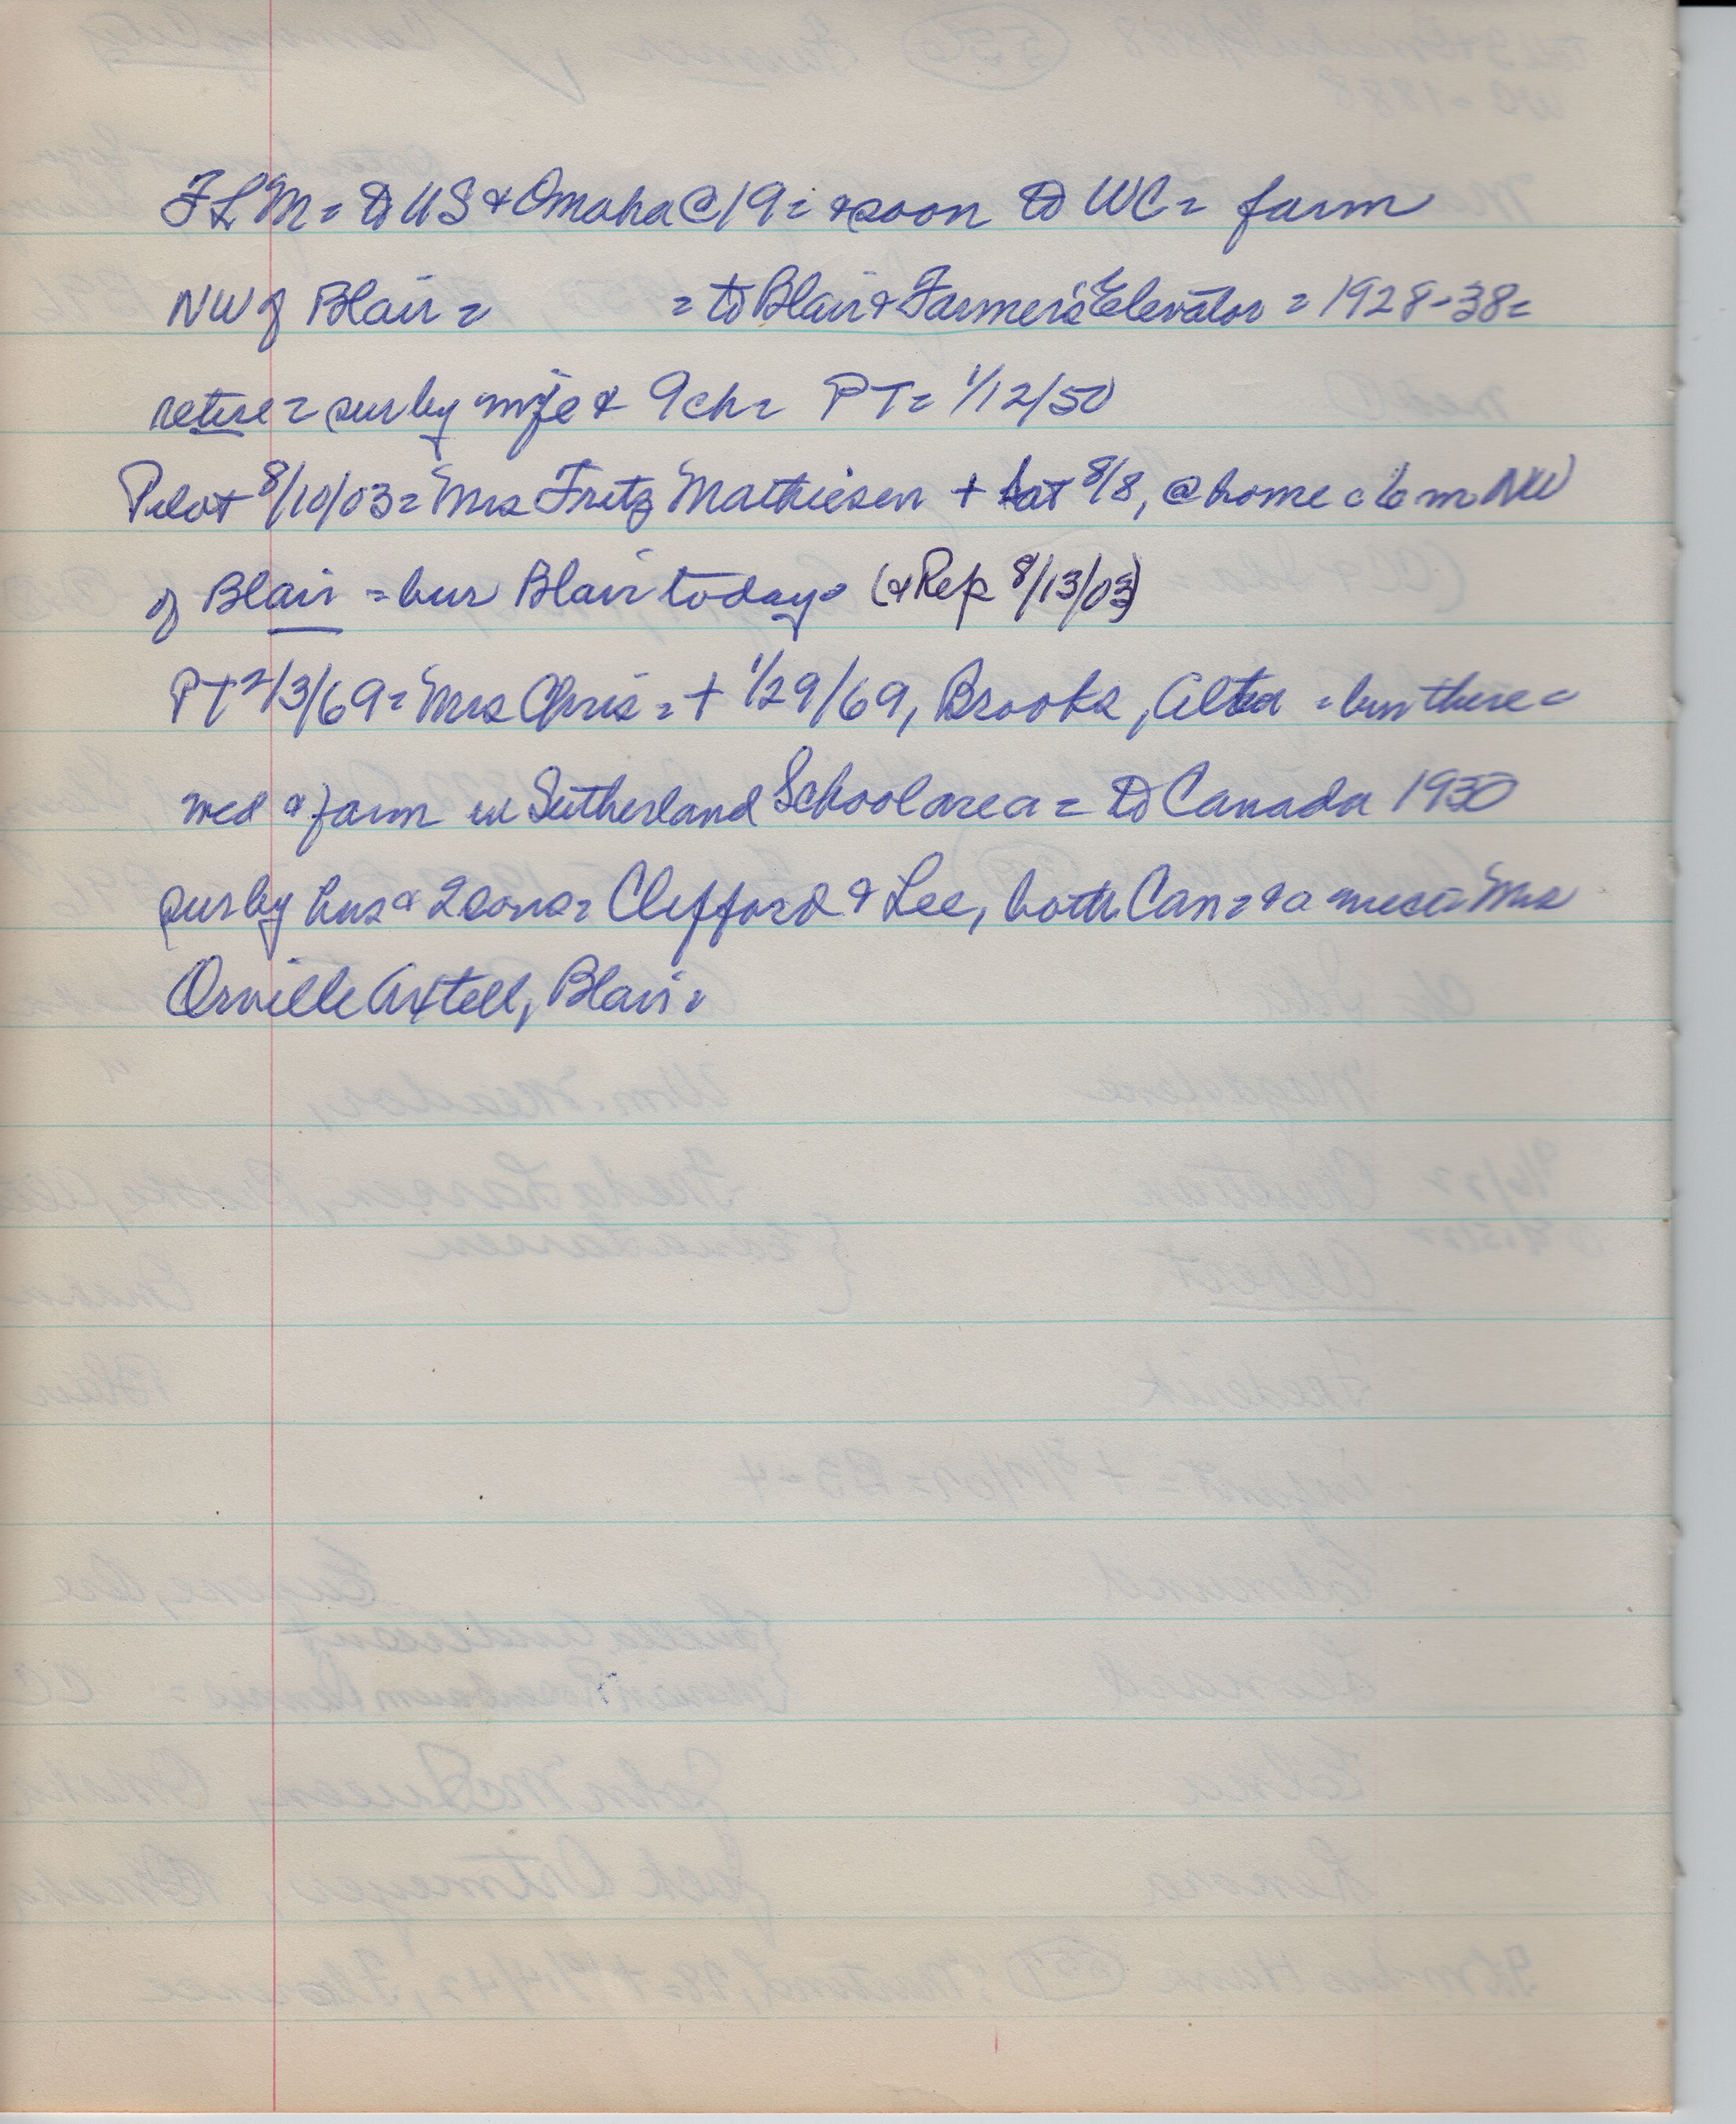 FLM = to US & Omaha @ 19 = & soon to WC = farm
NW of Blair = = to Blair & Farmer's Elevator = 1928-38 =
retire = sur by wife & 9 ch = PT = 1/12/50
Pilot 8/10/03 = Mrs Fritz Mathiesen + Sat 8/8, @ home 6 m NW
of Blair = bur Blair today = (& Rep 8/13/03)
PT 2/3/69 = Mrs Chris = + 1/29/69, Brooks, Alta = bur there =
med & farm in Sutherland School area = to Canada 1930
sur by hus & 2 sons = Clifford & Lee, both Can = & a niece = Mrs
Orville Axtell, Blair =